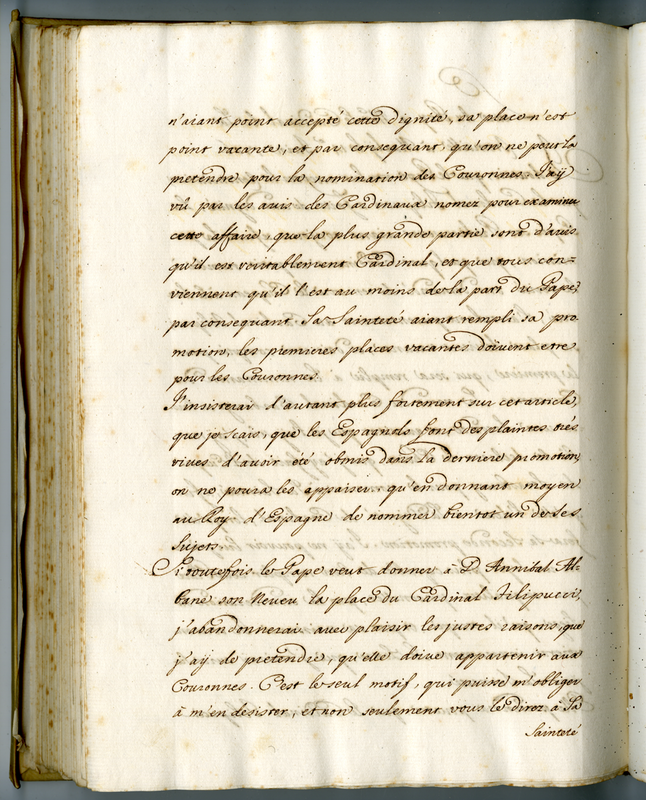 n'aiant point accepté cette dignité, sa place n'est
point vacante, et par consequant, qu'on ne peut la
pretendre pour la nomination des Couronnes. J'aÿ
vû par les avis des Cardinaux nomez pour examiner
cette affaire, que la plus grande partie sont d'avis
qu'il est veritablement Cardinal, et que tous con=
viennent qu'il l'est au moins de la part du Pape,
par consequant Sa Sainteté aiant rempli sa pro
motion, les premieres places vacantes doivent etre
pour les Couronnes.
J'insisterai d'autant plus fortement sur cet article,
que je scais, que les Espagnols font des plaintes trés
vives d'avoir été obmis dans la derniere promotion,
on ne poura les appaiser, qu'en donnant moyen
au Roy d'Espagne de nommer bientot un de ses
Sujets.
Si toutefois le Pape veut donner à D. Annibal Al-
bane son Neveu la place du Cardinal Filipucci,
j'abandonnerai avec plaisir les justes raisons, que
j'aÿ de pretendre, qu'elle doive appartenir aux
Couronnes. C'est le seul motif, qui puisse m'obliger
à m'en desister, et non seulement vous le direz à Sa
Sainteté